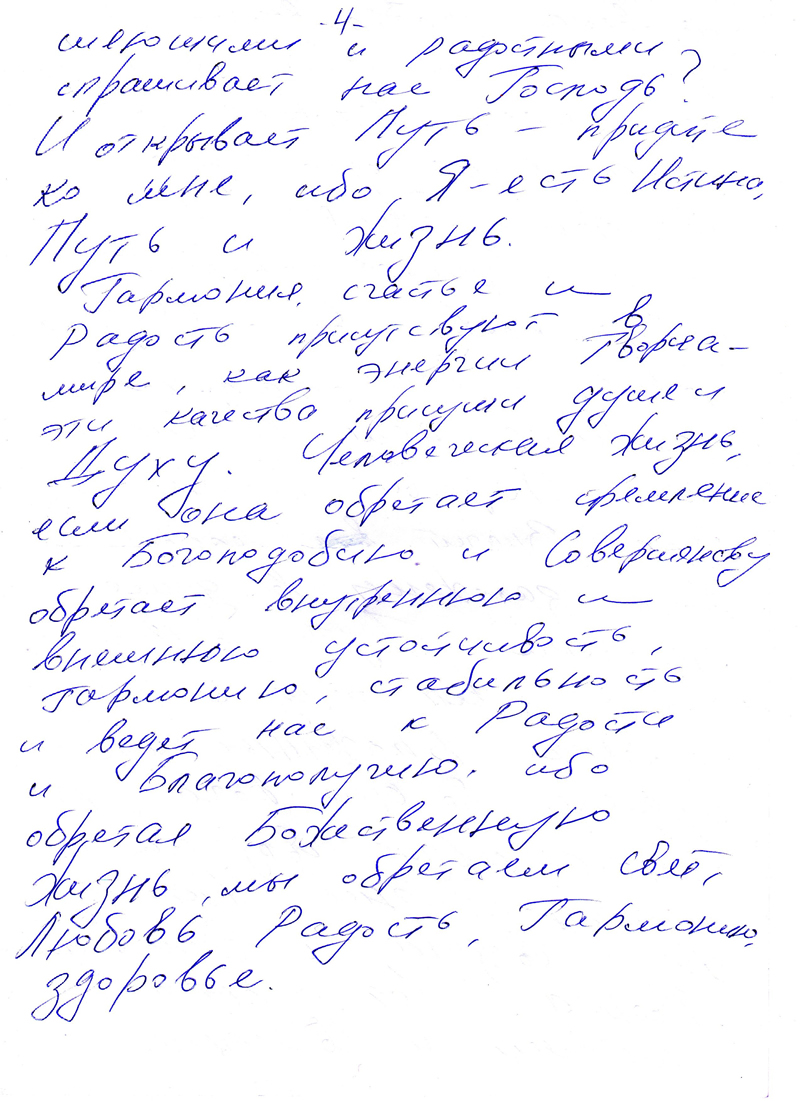 -4-
и радостными,
спрашивает нас Господь?
И открывает Путь – придите
ко мне, ибо Я-есть Истина,
Путь и Жизнь.
Гармония, счастье и
Радость присутствуют в
мире, как энергии Творца –
эти качества присущи душе и
Духу. Человеческая жизнь,
если она обретает стремление
к Богоподобию и Совершенству
обретает внутреннюю и
внешнюю устойчивость,
гармонию, стабильность
и ведет нас к Радости
и Благополучию, ибо
обретая Божественную
Жизнь, мы обретаем свет,
Любовь Радость, Гармонию,
здоровье.